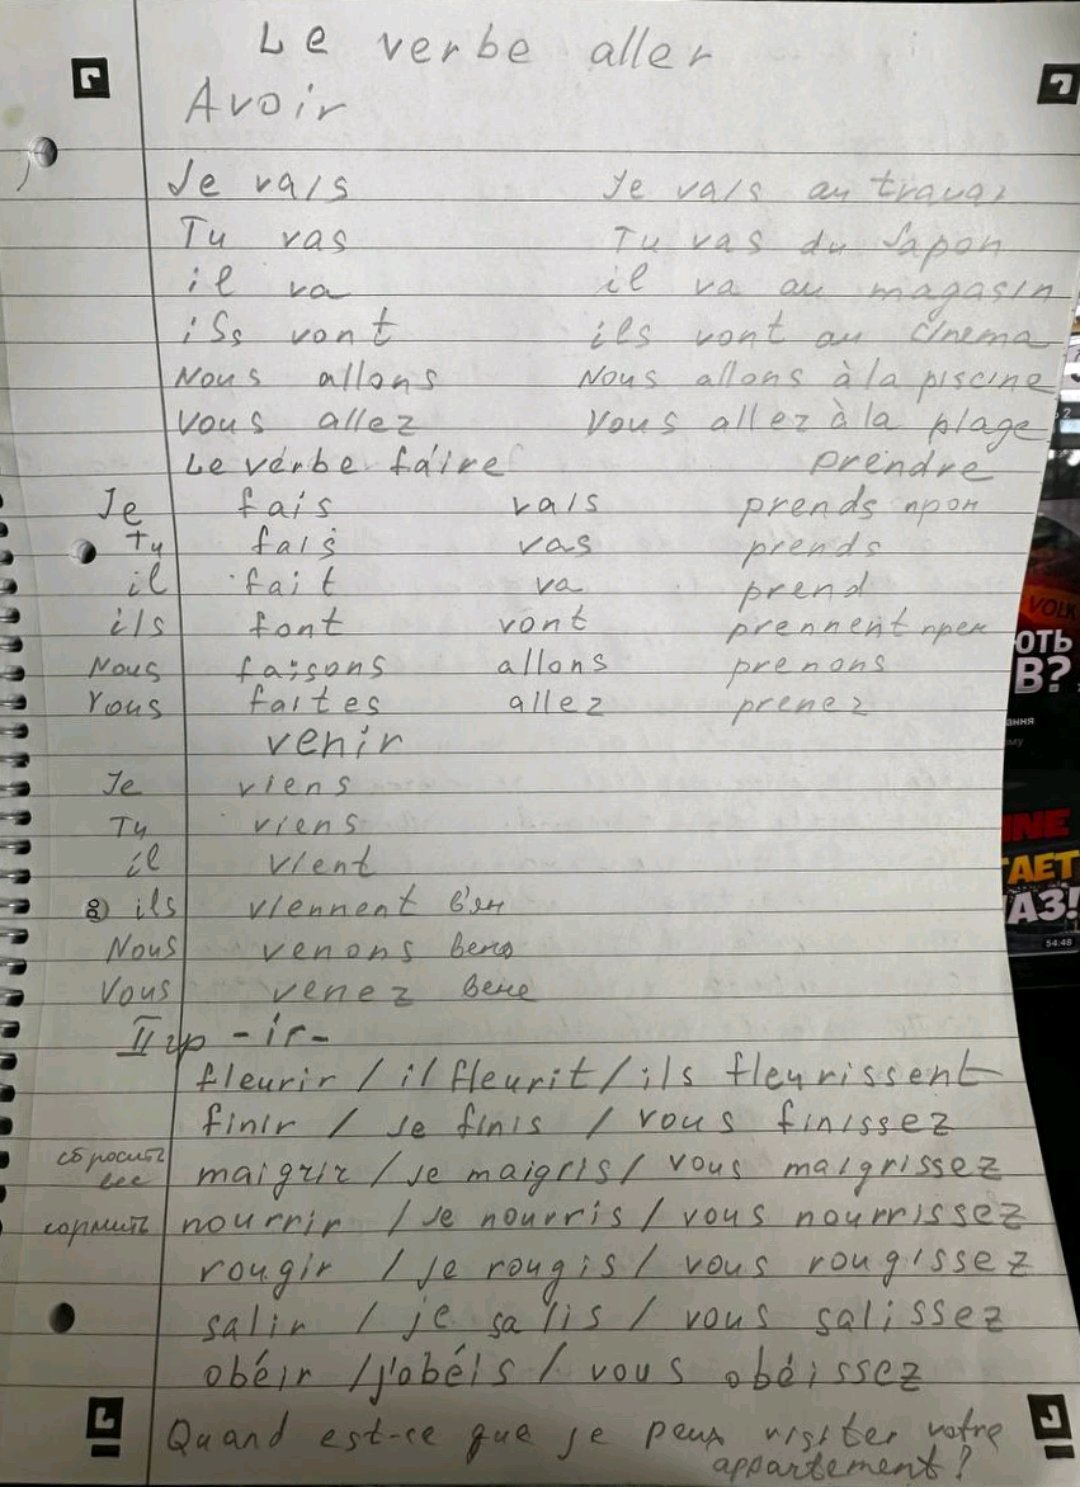 Le verbe aller
Avoir
Je vais Je vais au travai
Tu vas Tu vas du Japon
il va il va au magasin
ils vont ils vont au cinema
Nous allons Nous allons à la piscine
Vous allez Vous allez à la plage
Le verbe faire prendre
Je fais vais prends прон
Tu fais vas prends
il fait va prend
ils font vont prennent прен
Nous faisons allons prenons
Vous faites allez prenez
venir
Je viens
Tu viens
il vient
ils viennent в'ян
Nous venons вено
Vous venez вене
II гр -ir-
fleurir / il fleurit / ils fleurissent
finir / Je finis / vous finissez
сбросить вес maigrir / Je maigris / vous maigrissez
кормить nourrir / Je nourris / vous nourrissez
rougir / Je rougis / vous rougissez
salir / je salis / vous salissez
obéir / j'obéis / vous obéissez
Quand est-ce que je peux visiter votre
appartement?
VOLK
ОТЬ
В?
ання
INE
ТАЕТ
АЗ!
54:48